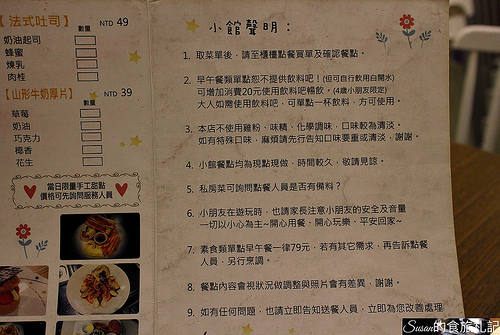 【法式吐司】 NTD 49
數量
奶油起司
蜂蜜
煉乳
肉桂
【山形牛奶厚片】 NTD 39
數量
草莓
奶油
巧克力
椰香
花生
當日限量手工甜點
價格可先詢問服務人員
小館聲明：
1. 取菜單後，請至櫃檯點餐買單及確認餐點。
2. 早午餐類單點恕不提供飲料吧！(但可自行飲用白開水)
可增加消費20元使用飲料吧暢飲。(4歲小朋友限定)
大人如需使用飲料吧，可單點一杯飲料，方可使用。
3. 本店不使用雞粉、味精、化學調味，口味較為清淡。
如有特殊口味，麻煩請先行告知口味要重或清淡，謝謝。
4. 小館餐點均為現點現做，時間較久，敬請見諒。
5. 私房菜可詢問點餐人員是否有備料？
6. 小朋友在遊玩時，也請家長注意小朋友的安全及音量
一切以小心為主~開心用餐、開心玩樂、平安回家~
7. 素食類單點早午餐一律79元，若有其它需求，再告訴點餐
人員，另行烹調。
8. 餐點內容會視狀況做調整與照片會有差異，謝謝。
9. 如有任何問題，也請立即告知送餐人員，立即為您改善處理
Susan的食旅札記